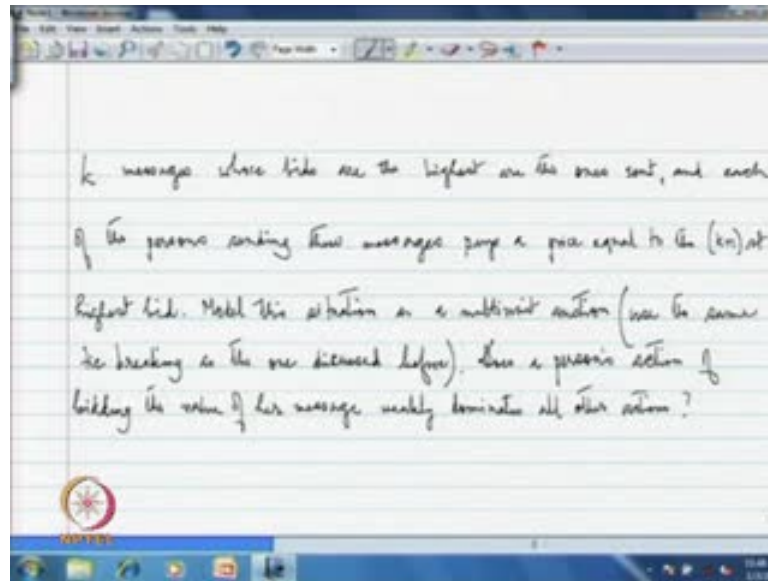 k messages whose bids are the highest are the ones sent, and each
of the persons sending these messages pays a price equal to the (k+1)st
highest bid. Model this situation as a multiunit auction (use the same
tie breaking as the one discussed before). Does a person's action of
bidding the value of her message weakly dominates all other action?
NPTEL
Edit View Insert Actions Tools Help
Page Width